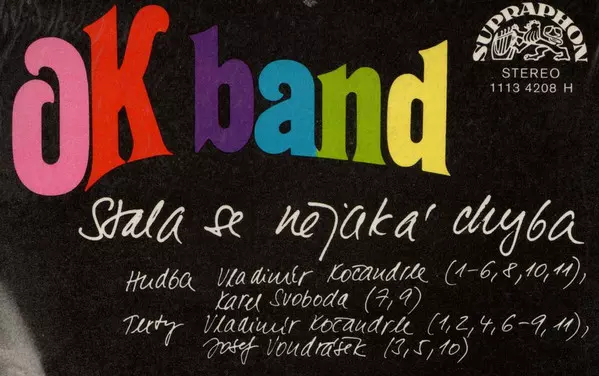 OK band
SUPRAPHON
STEREO
1113 4208 H
Stala se nějaká chyba
Hudba Vladimír Kočandrle (1-6, 8, 10, 11),
Karel Svoboda (7, 9)
Texty Vladimír Kočandrle (1, 2, 4, 6-9, 11),
Josef Vondrášek (3, 5, 10)